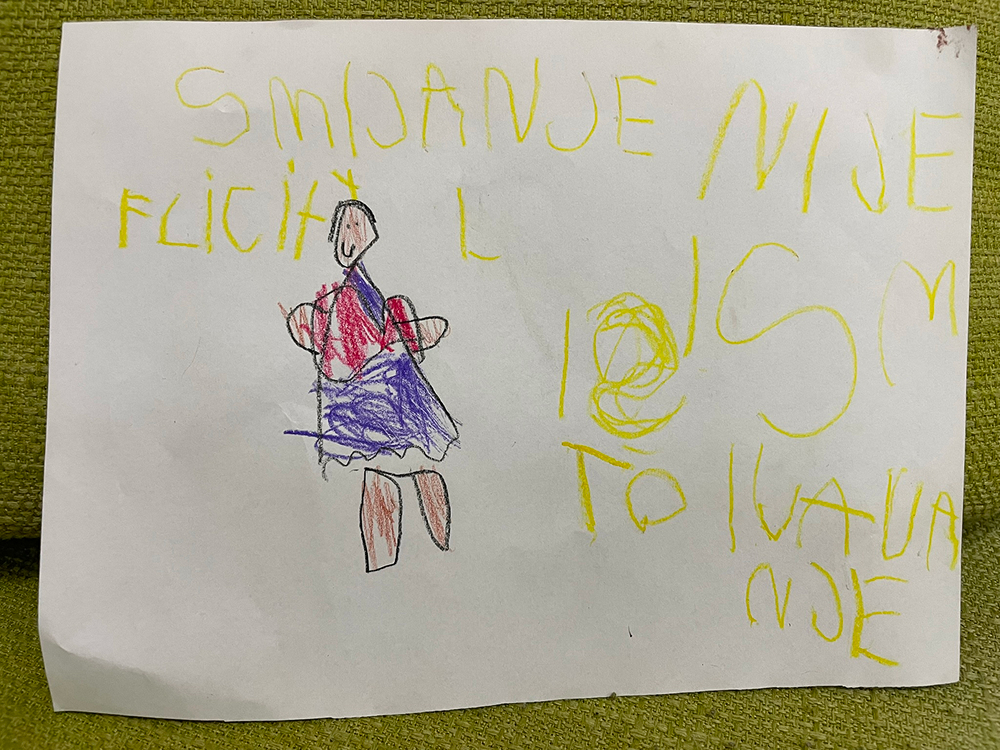 SMIJANJE NIJE
FLICITY L
I ISM
TO IUAUA
NJE